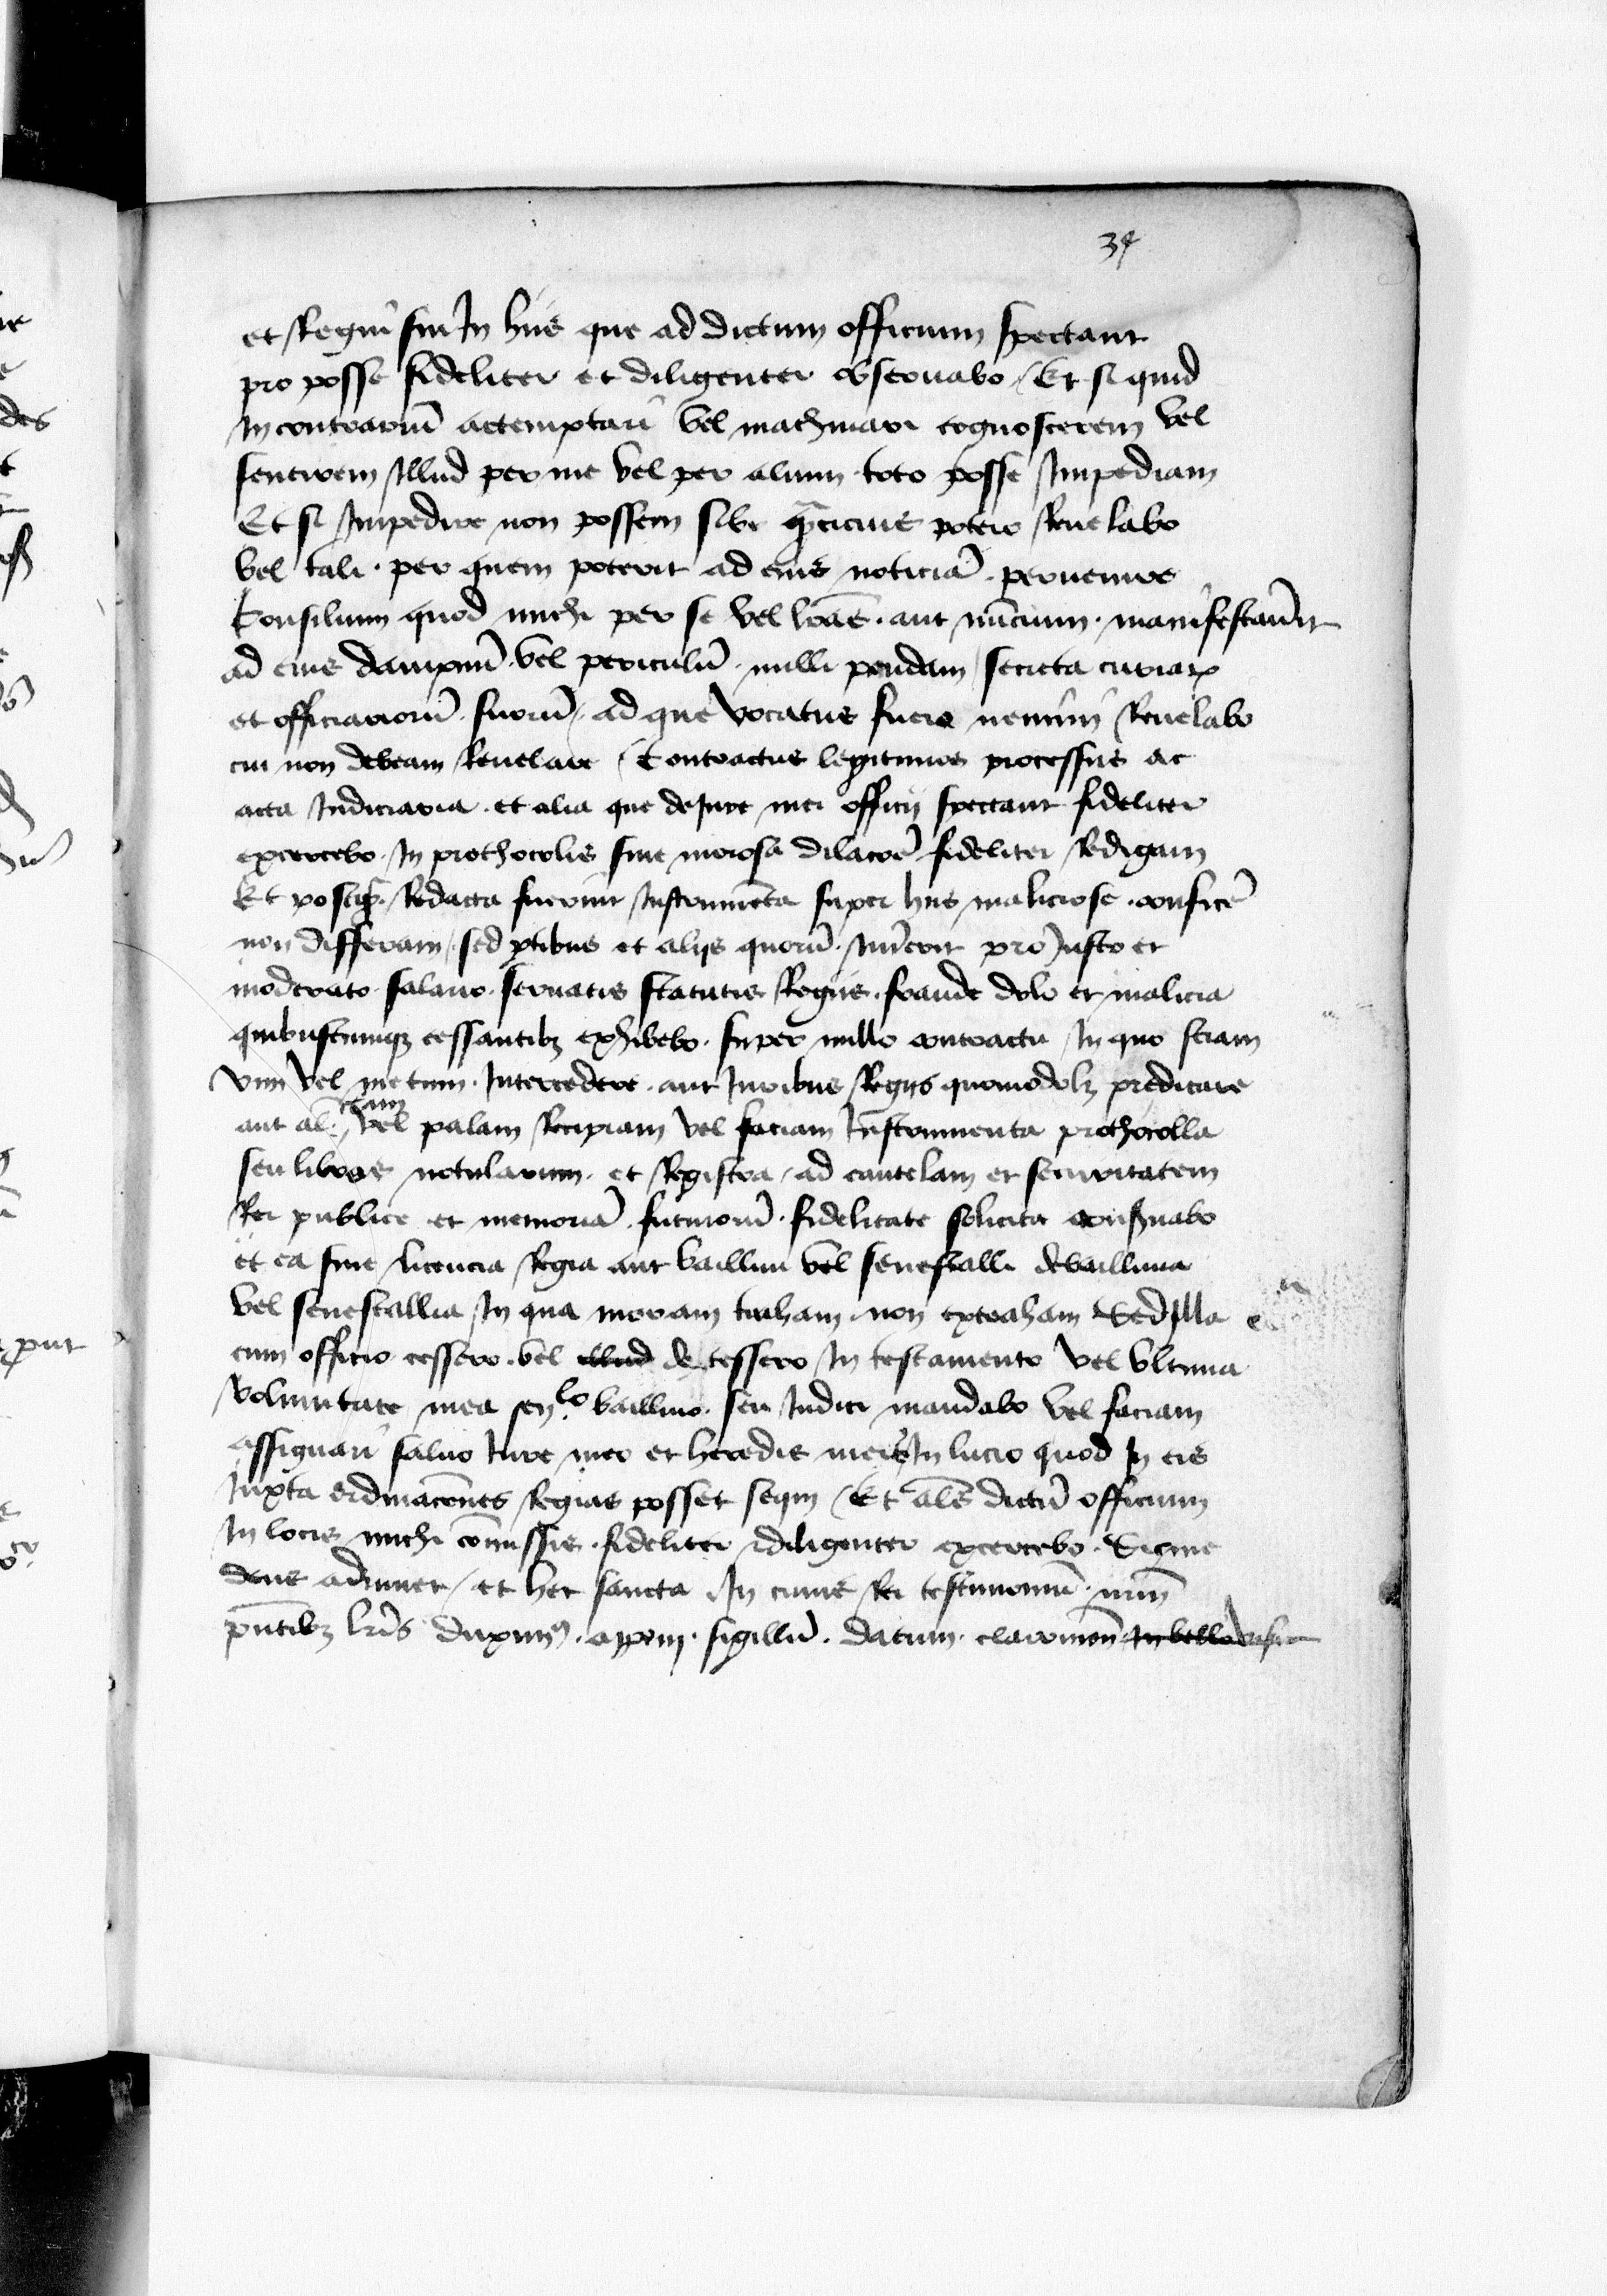 34
et Regni sui In hiis que ad dictum officium spectant
pro posse fideliter et diligenter observabo / Et si quid
In contrariu attemptari vel machinari cognoscerem vel
sentirem Illud per me vel per alium toto posse Impediam
Et si Impedire non possem sibi qcicius potero Revelabo
vel tali . per quem poterit ad eius noticia . pervenire
Consilium quod michi per se vel lras . aut nuncium . manifestaverit
ad eius dampnu . vel periculu . nulli pandam / secreta curiar
et officiarioru . suoru / ad que vocatus fuero nemini Revelabo
cui non debeam Revelare / Contractus legitimos processus ac
acta Judiciaria . et alia que de Jure mei officii spectant fideliter
excercebo . In prothocolis sine morosa dilacoe fideliter Redigam
Et postq . Redacta fuerint Instrumeta super hiis maliciose . conficere
non differam / sed ptibus et aliis quoru . Intererit pro Justo et
moderato salario . servatis statutis Regiis . fraude dolo et malicia
quibuscumq cessantib exhibebo . super nullo contractu In quo sciam
vim vel metum . Intercedere . aut Juribus Regiis quomodolz predicare
aut al. clam vel palam Recipiam vel faciam Instrumenta prothocolla
seu libros notularum . et Registra / ad cautelam et securitatem
Rei publice et memoria . futuroru . fidelitate solicita conservabo
et ea sine licencia Regia aut baillivi vel senescalli de baillivia
vel senescallia In qua moram traham . non extraham Sed Illa
cum officio cessero . vel illud decessero In testamento vel ultima
voluntate mea sen.lo baillivo . seu Judici mandabo vel faciam
assignari salvo Jure meo et heredis meis In lucro quod In eis
Juxta ordinacoes Regias posset sequi / Et als dictu officium
In locis michi comissis . fideliter et diligenter excercebo . Sic me
deus adiuvet / et hec sancta . In cuius Rei testimoniu . nrm
pntib lris duxim9 . apponi . sigillu . datum . claromon In bello